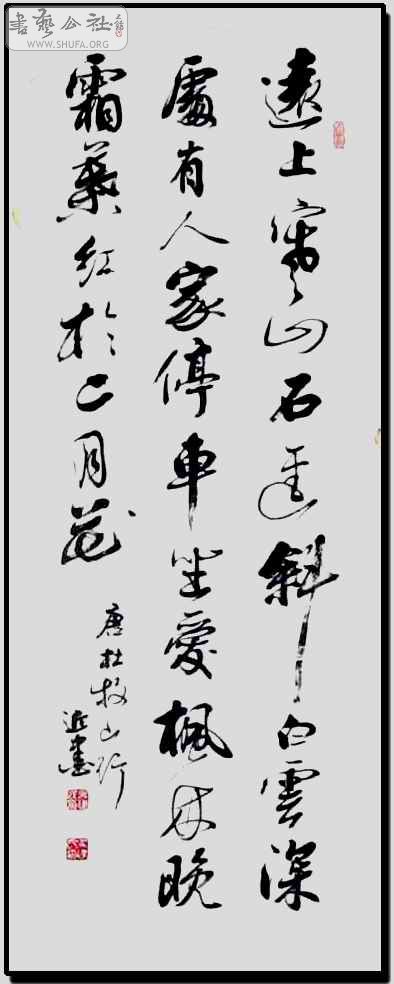 遠上寒山石逕斜白雲深
處有人家停車坐愛楓林晚
霜葉紅於二月花
唐杜牧山行
近書
書藝公社
WWW.SHUFA.ORG